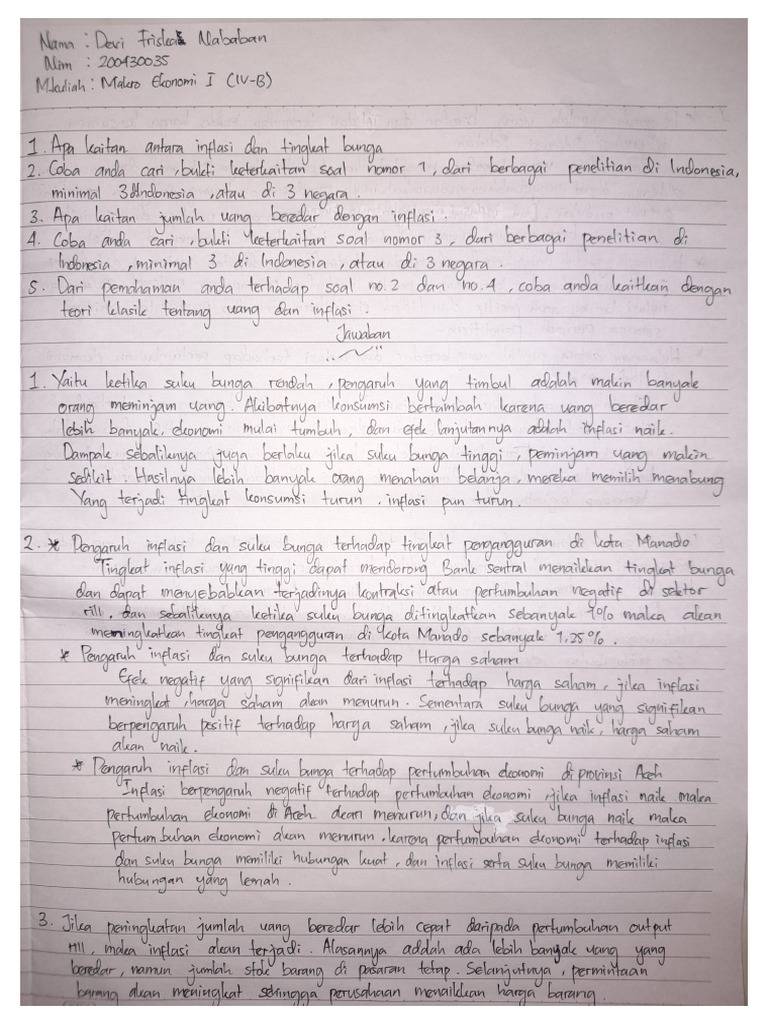 Nama : Devi Friska Nababan
Nim : 200430035
M.kuliah : Makro Ekonomi I (IV-B)
1. Apa kaitan antara inflasi dan tingkat bunga
2. Coba anda cari, bukti keterkaitan soal nomor 1, dari berbagai penelitian di Indonesia,
minimal 3 di Indonesia, atau di 3 negara.
3. Apa kaitan jumlah uang beredar dengan inflasi.
4. Coba anda cari, bukti keterkaitan soal nomor 3, dari berbagai penelitian di
Indonesia, minimal 3 di Indonesia, atau di 3 negara.
5. Dari pemahaman anda terhadap soal no.2 dan no.4, coba anda kaitkan dengan
teori klasik tentang uang dan inflasi.
Jawaban
1. Yaitu ketika suku bunga rendah, pengaruh yang timbul adalah makin banyak
orang meminjam uang. Akibatnya konsumsi bertambah karena uang beredar
lebih banyak, ekonomi mulai tumbuh, dan efek lanjutannya adalah inflasi naik.
Dampak sebaliknya juga berlaku jika suku bunga tinggi, peminjam uang makin
sedikit. Hasilnya lebih banyak orang menahan belanja, mereka memilih menabung
Yang terjadi tingkat konsumsi turun, inflasi pun turun.
2. * Pengaruh inflasi dan suku bunga terhadap tingkat pengangguran di kota Manado
Tingkat inflasi yang tinggi dapat mendorong Bank sentral menaikkan tingkat bunga
dan dapat menyebabkan terjadinya kontraksi atau pertumbuhan negatif di sektor
riil, dan sebaliknya ketika suku bunga ditingkatkan sebanyak 1% maka akan
meningkatkan tingkat pengangguran di kota Manado sebanyak 1,25%.
* Pengaruh inflasi dan suku bunga terhadap Harga saham
Efek negatif yang signifikan dari inflasi terhadap harga saham, jika inflasi
meningkat, harga saham akan menurun. Sementara suku bunga yang signifikan
berpengaruh positif terhadap harga saham, jika suku bunga naik, harga saham
akan naik.
* Pengaruh inflasi dan suku bunga terhadap pertumbuhan ekonomi di provinsi Aceh
Inflasi berpengaruh negatif terhadap pertumbuhan ekonomi, jika inflasi naik maka
pertumbuhan ekonomi di Aceh akan menurun, dan jika suku bunga naik maka
pertumbuhan ekonomi akan menurun, karena pertumbuhan ekonomi terhadap inflasi
dan suku bunga memiliki hubungan kuat, dan inflasi serta suku bunga memiliki
hubungan yang lemah.
3. Jika peningkatan jumlah uang beredar lebih cepat daripada pertumbuhan output
riil, maka inflasi akan terjadi. Alasannya adalah ada lebih banyak uang yang
beredar, namun jumlah stok barang di pasaran tetap. Selanjutnya, permintaan
barang akan meningkat sehingga perusahaan menaikkan harga barang.